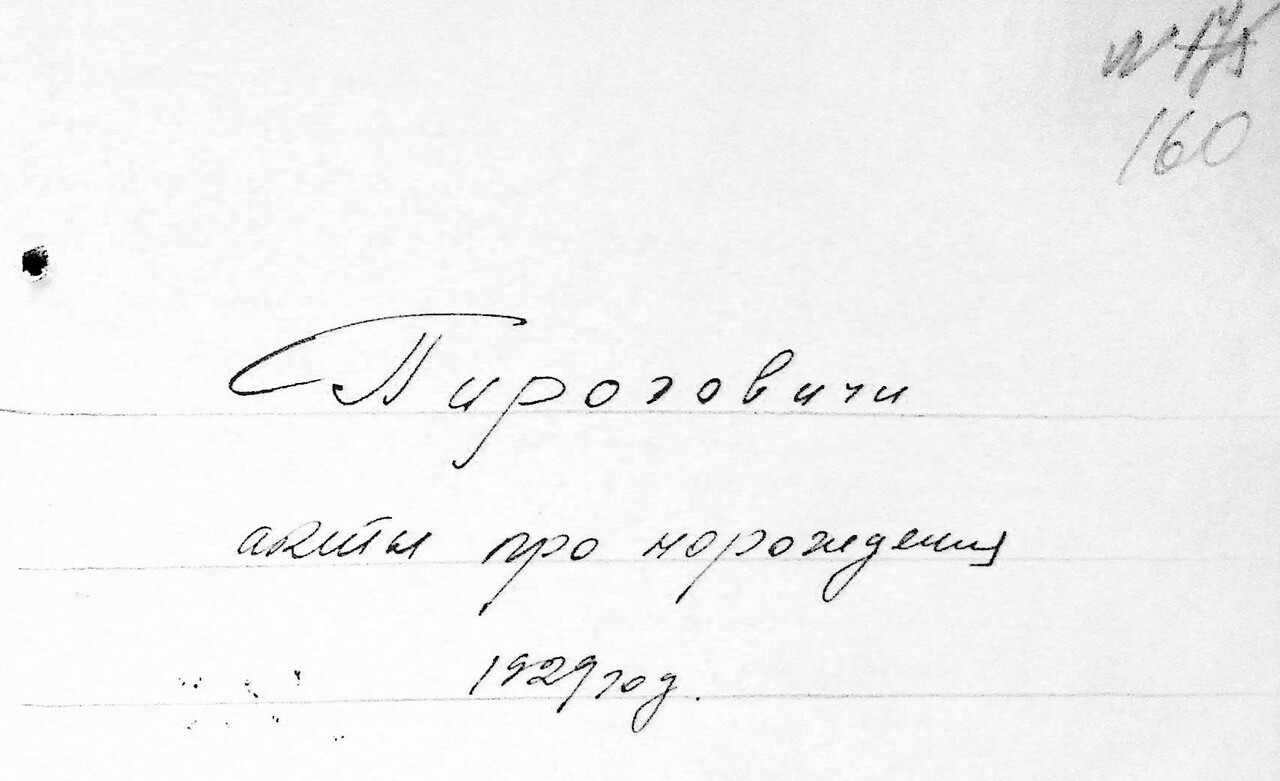 № 175
160
Пироговичи
акты про норождения
1929 год.